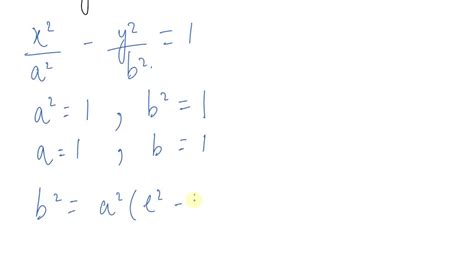 x²/a² - y²/b² = 1
a² = 1 , b² = 1
a = 1 , b = 1
b² = a² ( e² -